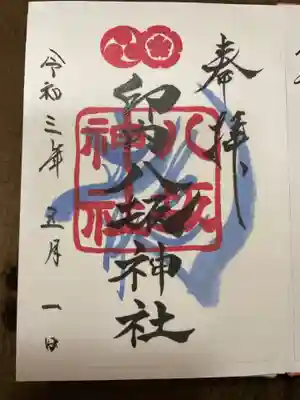 奉拝
八坂
神社
印内八坂神社
令和三年五月一日